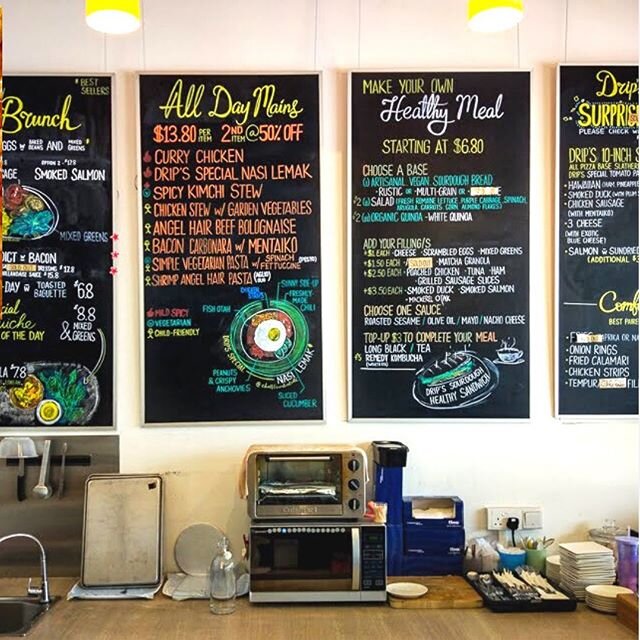 *BEST SELLERS
Brunch
EGGS AND BAKED BEANS AND MIXED GREENS
OPTION 2 - $12.8
SMOKED SALMON
MIXED GREENS
BACON
SOLD OUT
TOASTED BAGUETTE $6.8
$8.8
& MIXED GREENS
OF THE DAY
All Day Mains
$13.80 PER ITEM 2ND ITEM @50% OFF
CURRY CHICKEN
DRIP'S SPECIAL NASI LEMAK
SPICY KIMCHI STEW
CHICKEN STEW W/ GARDEN VEGETABLES
ANGEL HAIR BEEF BOLOGNAISE
BACON CARBONARA W/ MENTAIKO
SIMPLE VEGETARIAN PASTA W/ SPINACH FETTUCCINE (PESTO)
SHRIMP ANGEL HAIR PASTA (AGLIO OLIO)
MILD SPICY
VEGETARIAN
CHILD-FRIENDLY
SUNNY SIDE-UP
FRESHLY-MADE CHILI
FISH OTAH
DRIP'S SPECIAL NASI LEMAK
PEANUTS & CRISPY ANCHOVIES
SLICED CUCUMBER
MAKE YOUR OWN
Healthy Meal
STARTING AT $6.80
CHOOSE A BASE
(1) ARTISANAL VEGAN SOURDOUGH BREAD
- RUSTIC OR - MULTI-GRAIN OR
(2) SALAD (FRESH ROMAINE LETTUCE, PURPLE CABBAGE, SPINACH, ARUGULA, CARROTS, CORN, ALMOND FLAKES)
(2) ORGANIC QUINOA - WHITE QUINOA
ADD YOUR FILLING/S
$1 EACH - CHEESE - SCRAMBLED EGGS - MIXED GREENS
$1.50 EACH - MATCHA GRANOLA
$2.50 EACH - POACHED CHICKEN - TUNA - HAM
- GRILLED SAUSAGE SLICES
$3.50 EACH - SMOKED DUCK - SMOKED SALMON
- MACKEREL OTAK
CHOOSE ONE SAUCE
ROASTED SESAME / OLIVE OIL / MAYO / NACHO CHEESE
TOP-UP $3 TO COMPLETE YOUR MEAL
LONG BLACK / TEA
REMEDY KOMBUCHA
DRIP'S SOURDOUGH HEALTHY SANDWICH
Drip's
SURPRISE
PLEASE CHECK W
DRIP'S 10-INCH
ALL PIZZA BASE SLATHERE
DRIP'S SPECIAL TOMATO PA
- HAWAIIAN (HAM, PINEAPPLE
- SMOKED DUCK (WITH MUS
- CHICKEN SAUSAGE
(WITH MENTAIKO)
- 3 CHEESE
(WITH EXOTIC BLUE CHEESE)
- SALMON W/ SUNDRIE
(ADDITIONAL $3
Comfo
BEST PAIRE
- ONION RINGS
- FRIED CALAMARI
- CHICKEN STRIPS
- TEMPURA